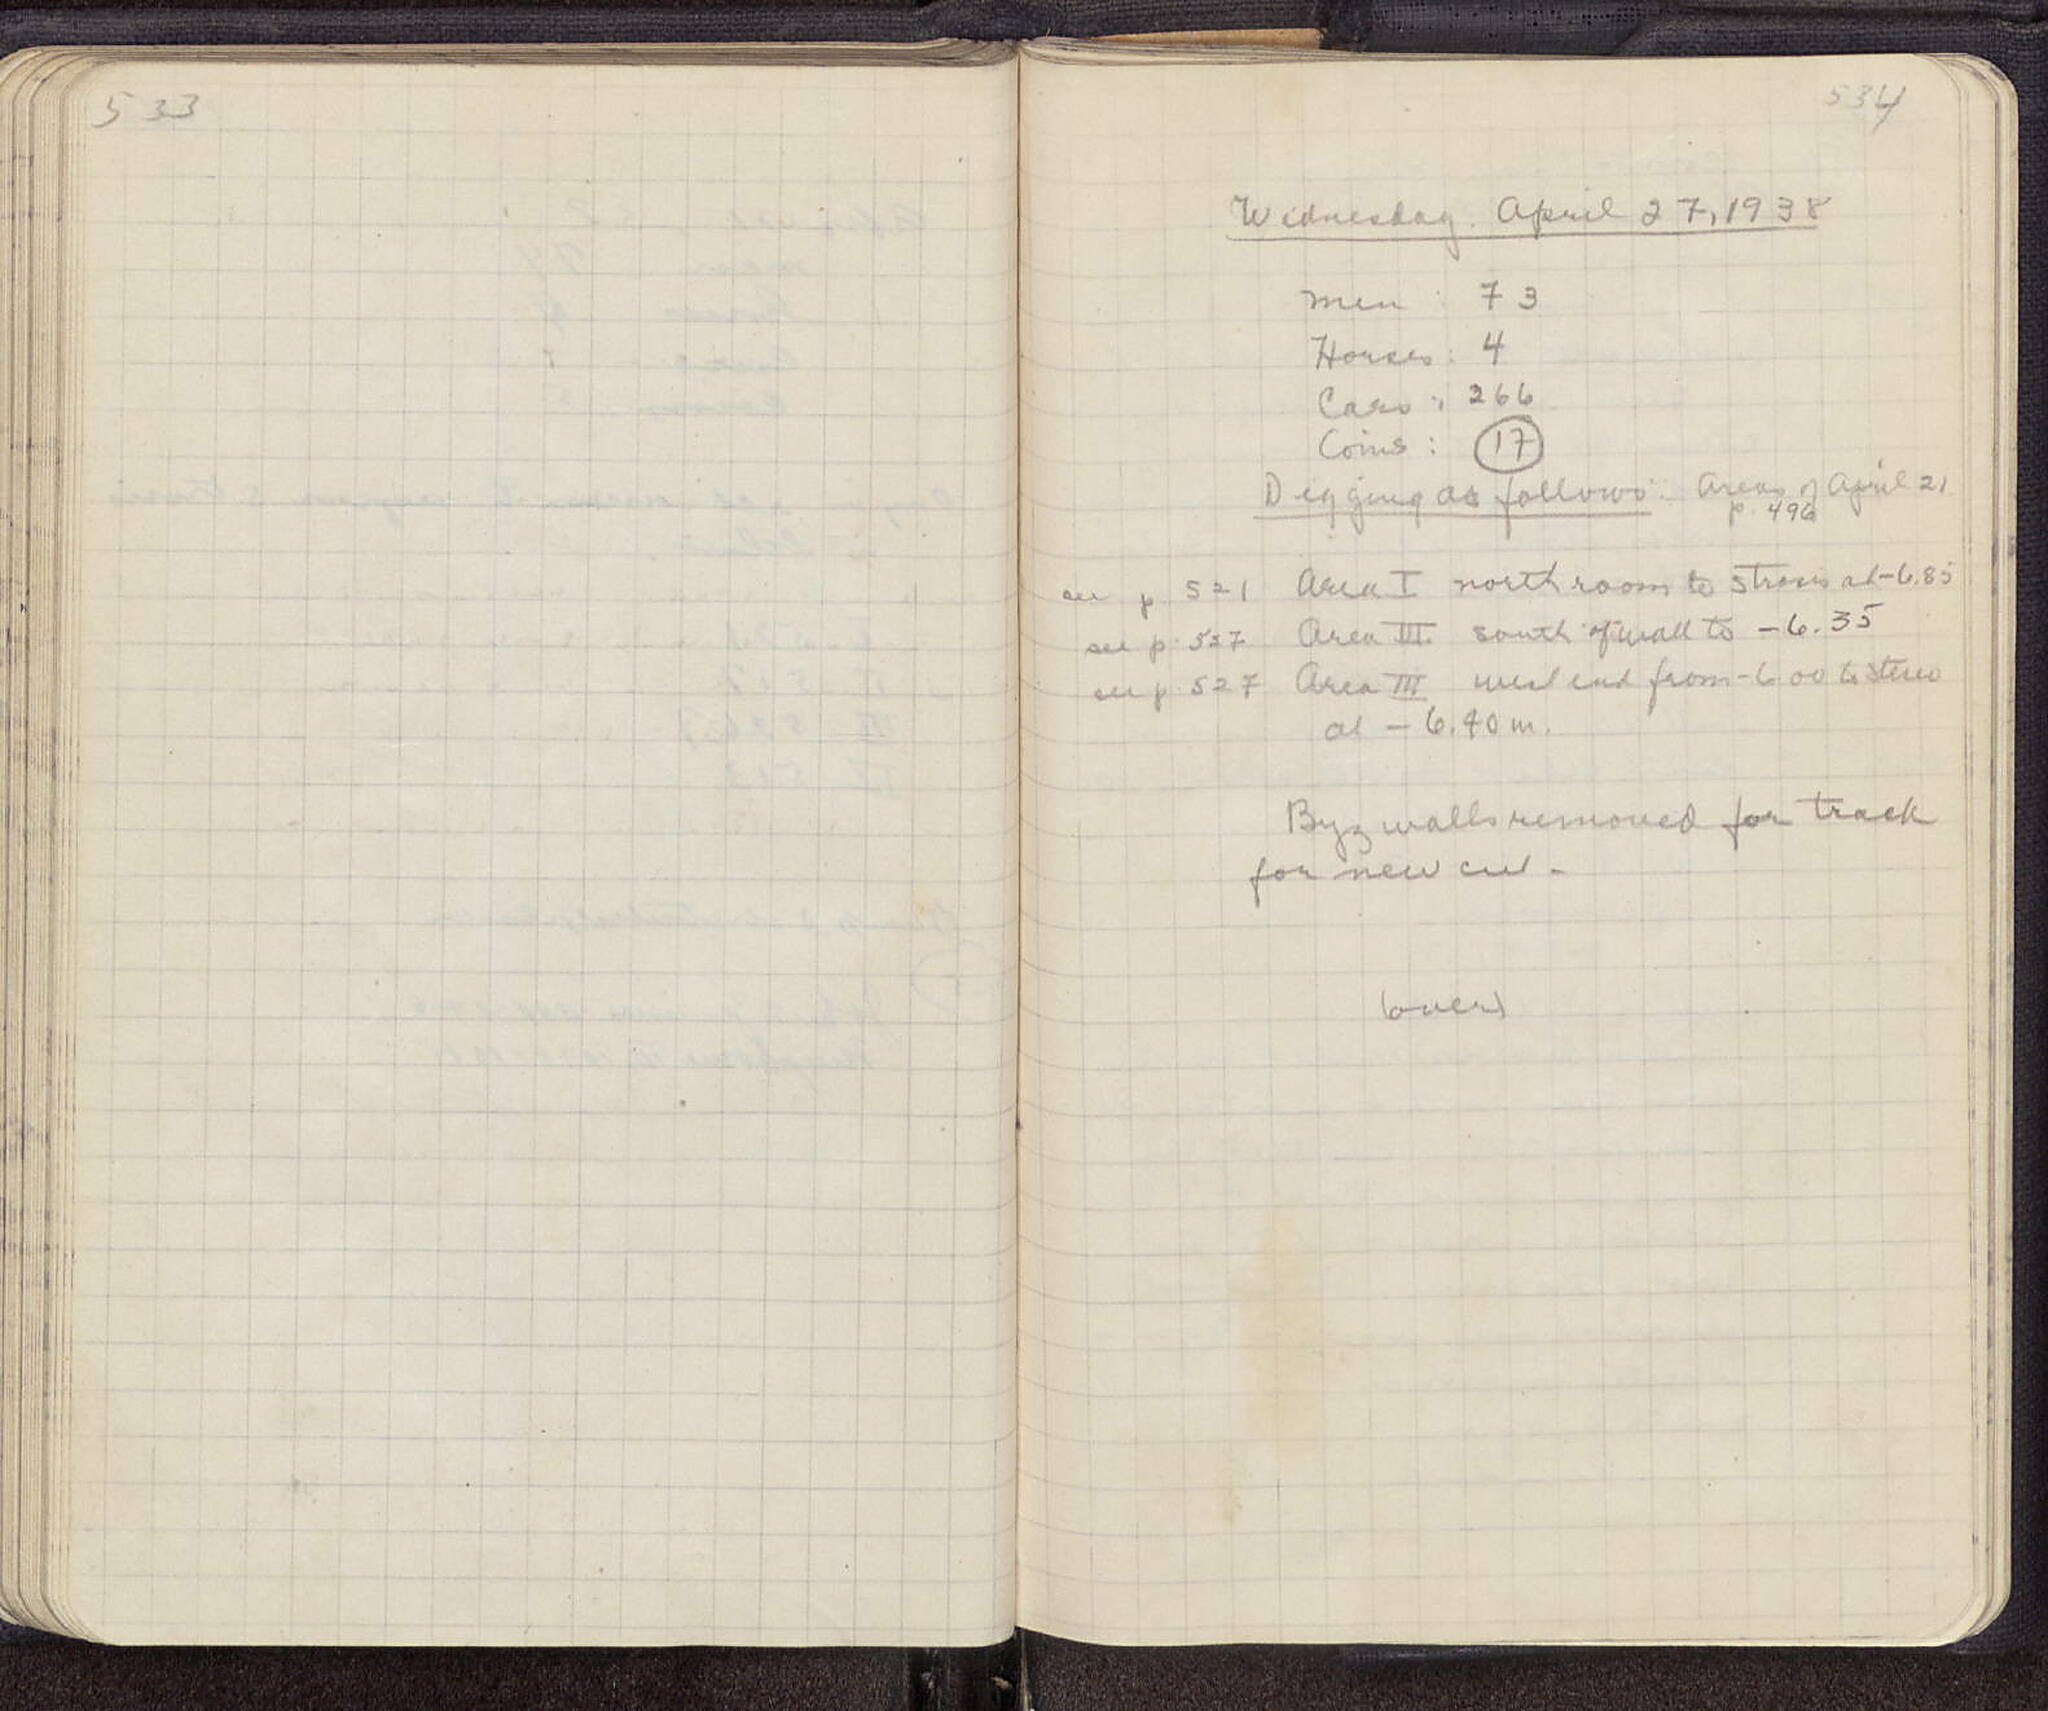 533
534
Wednesday. April 27, 1938
Men : 73
Horses : 4
Cars : 266
Coins : 17
Digging as follows: Areas of April 21
p. 496
see p. 521 Area I north room to stereo at -6.85
see p. 527 Area III. south of wall to -6.35
see p. 527 Area III west end from -6.00 to stereo
at -6.40 m.
Byz walls removed for track
for new cut -
(over)